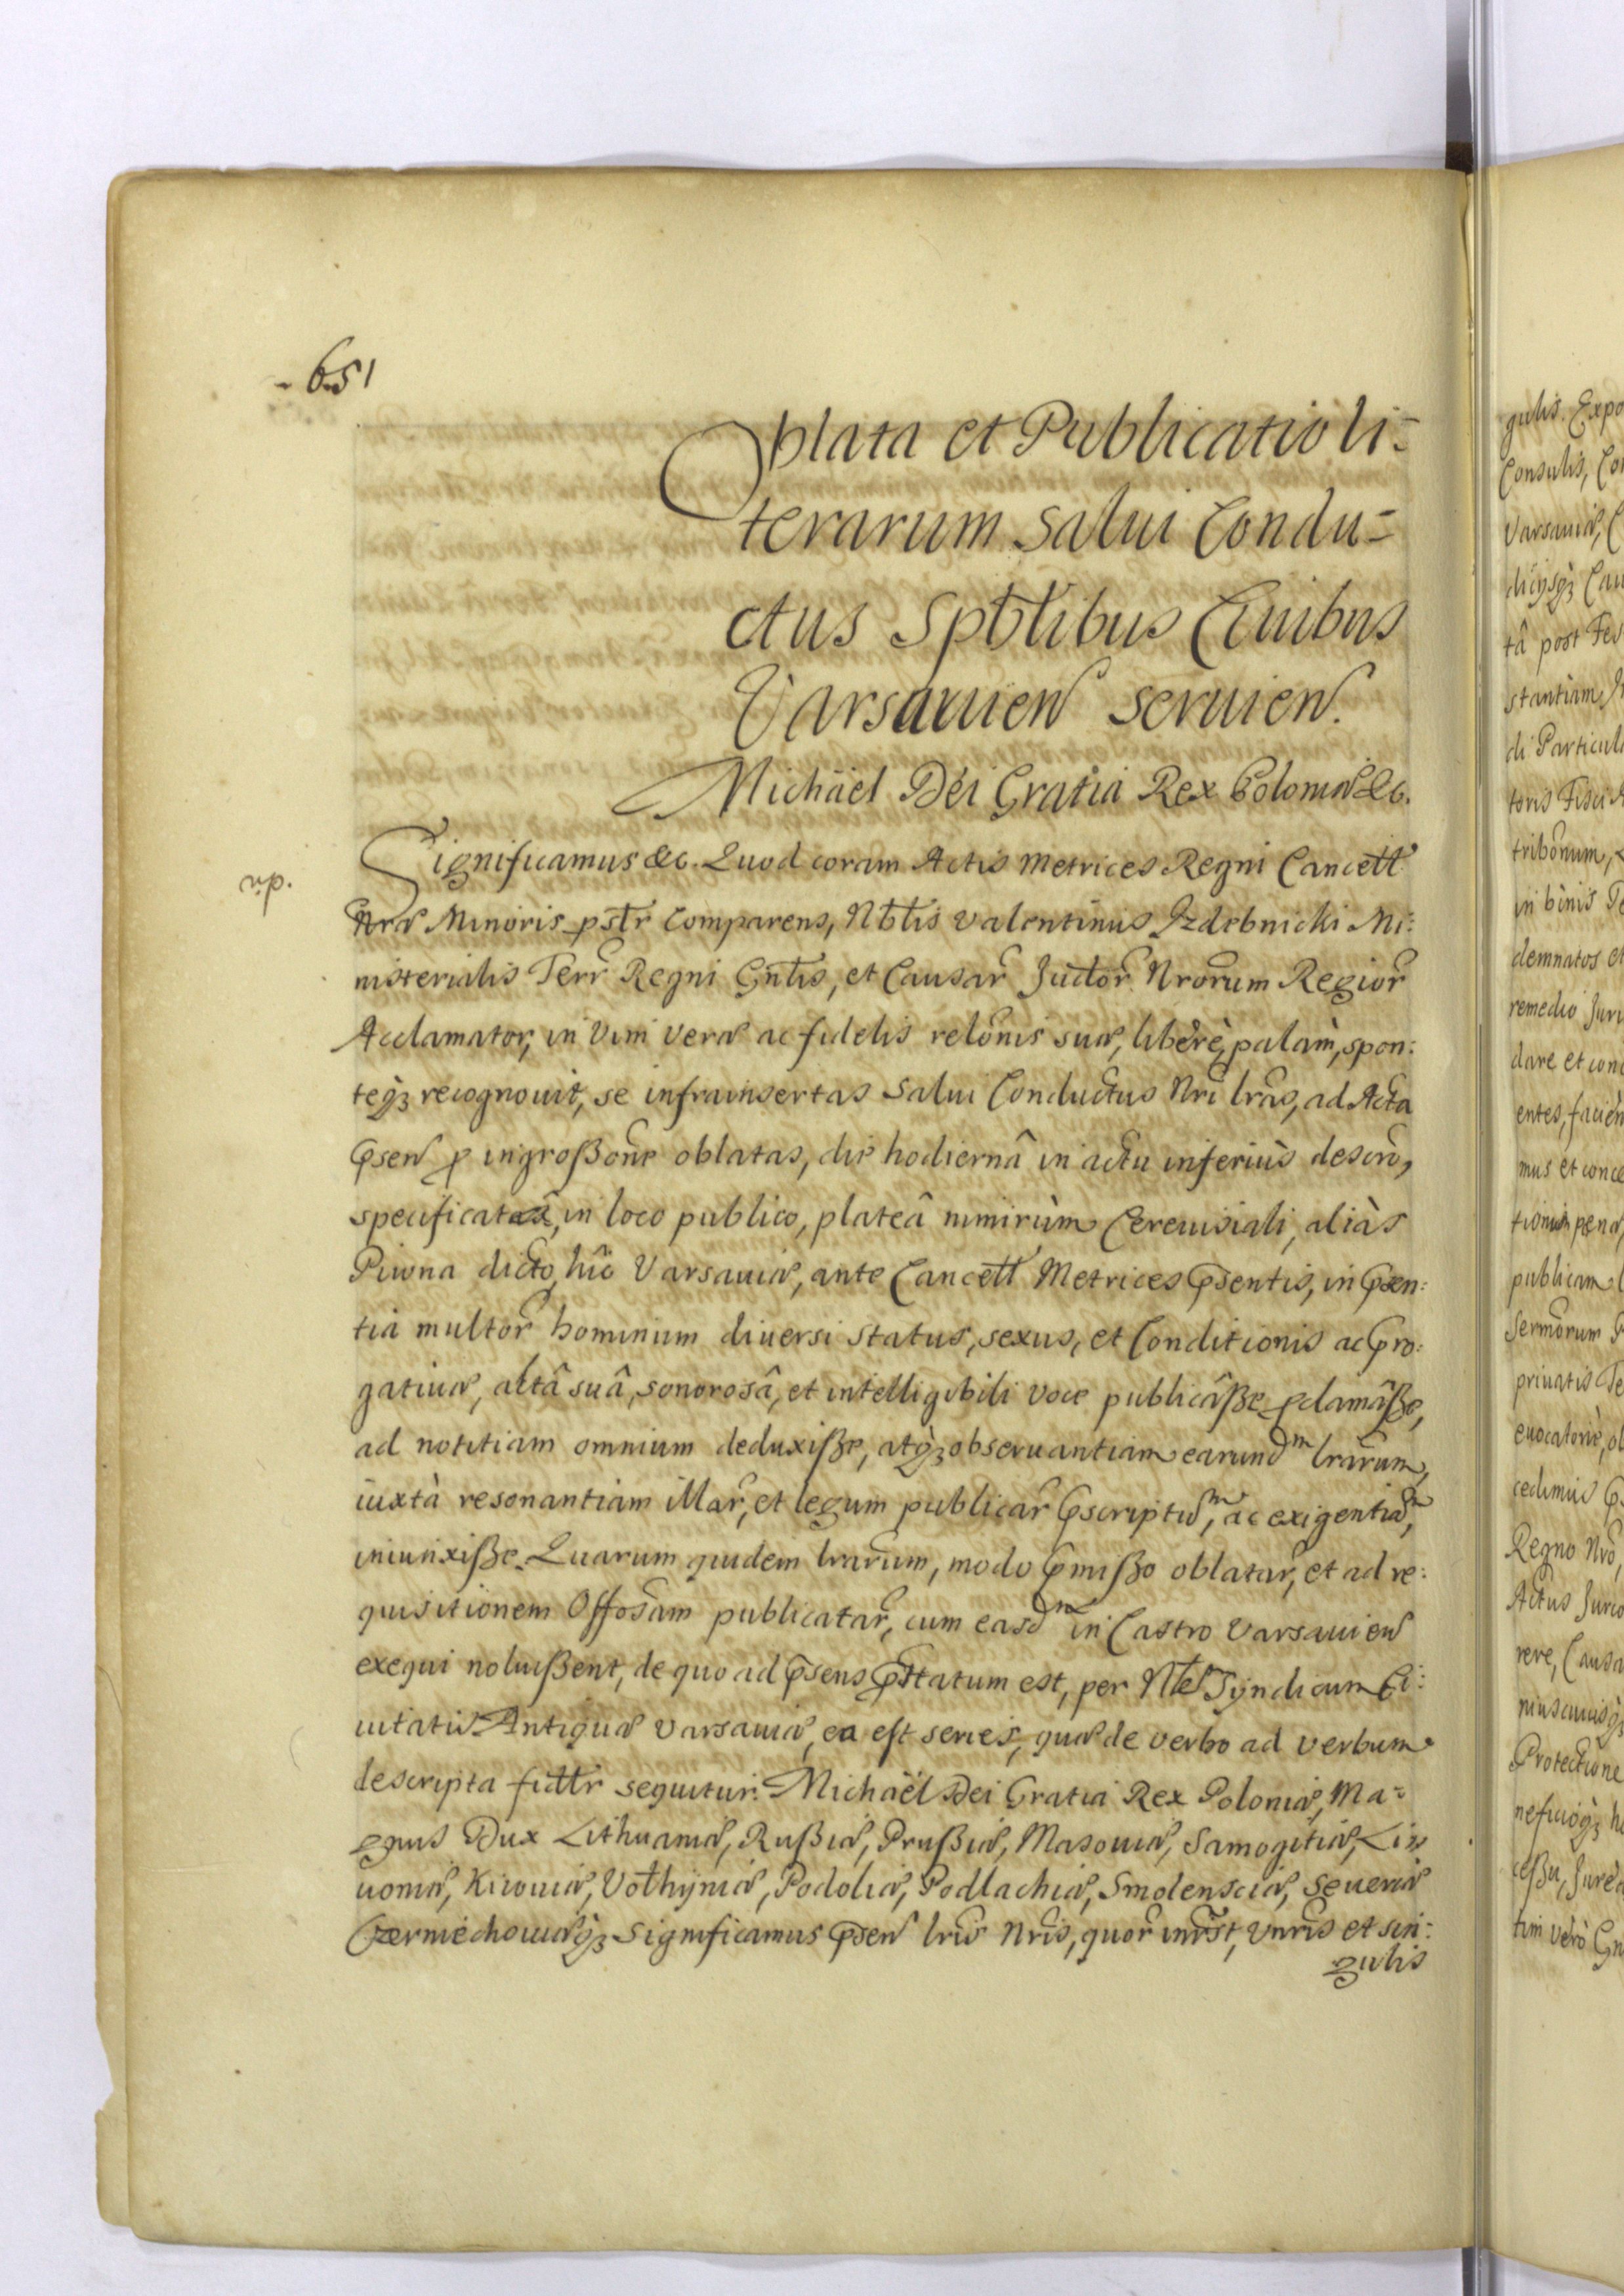 651
Oblata et Publicatio li=
terarum Salui Condu=
ctus Spbtlibus Ciuibus
Varsauien seruien.
Michaël Dei Gratia Rex Poloniæ &c.
Significamus &c. Quod coram Actis Metrices Regni Cancell
Nræ Minoris pstr Comparens, Nbtlis Valentinus Jzdebnicki Mi:
nisterialis Terr Regni Gntlis, et Causar Judtor Nrorum Regior
Acclamator, in Vim Veræ ac fidelis relonis suæ, liberè, palàm, spon:
teqз recognouit, se infrainsertas Salui Conductus Nri lras, ad Acta
Psen p ingroßone oblatas, die hodiernâ in actu inferiùs descro,
specificatâ, in loco publico, plateâ nimirùm Cereuisiali, aliàs
Piwna dicto, hîc Varsauiæ, ante Cancell Metrices Psentis, in Psen:
tia multor hominum diuersi status, sexus, et Conditionis ac Pro:
gatiuæ, altâ suâ, sonorosâ, et intelligibili voce publicâße, pclamâße,
ad notitiam omnium deduxiße, atqз obseruantiam earund^m lrarum,
iuxtà resonantiam illar, et legum publicar Pscriptu^m, ac exigentia^m,
iniunxiße. Quarum quidem lrarum, modo Pmißo oblatar, et ad re:
quisitionem Offosam publicatar, cum easd^m in Castro Varsauien
exequi noluißent, de quo ad Psens Pttatum est, per Nlem Syndicum Ci:
uitatis Antiquæ Varsauiæ, ea est series, quæ de verbo ad verbum
descripta fidtlr sequitur. Michaël Dei Gratia Rex Poloniæ, Ma=
gnus Dux Lithuaniæ, Rußiæ, Prußiæ, Masouiæ, Samogitiæ, Li
uoniæ, Kiiouiæ, Volhyniæ, Podoliæ, Podlachiæ, Smolensciæ, Seueriæ
Czerniechouiæqз Significamus Psen lris Nris, quor inrst, Vnris et sin:
gulis